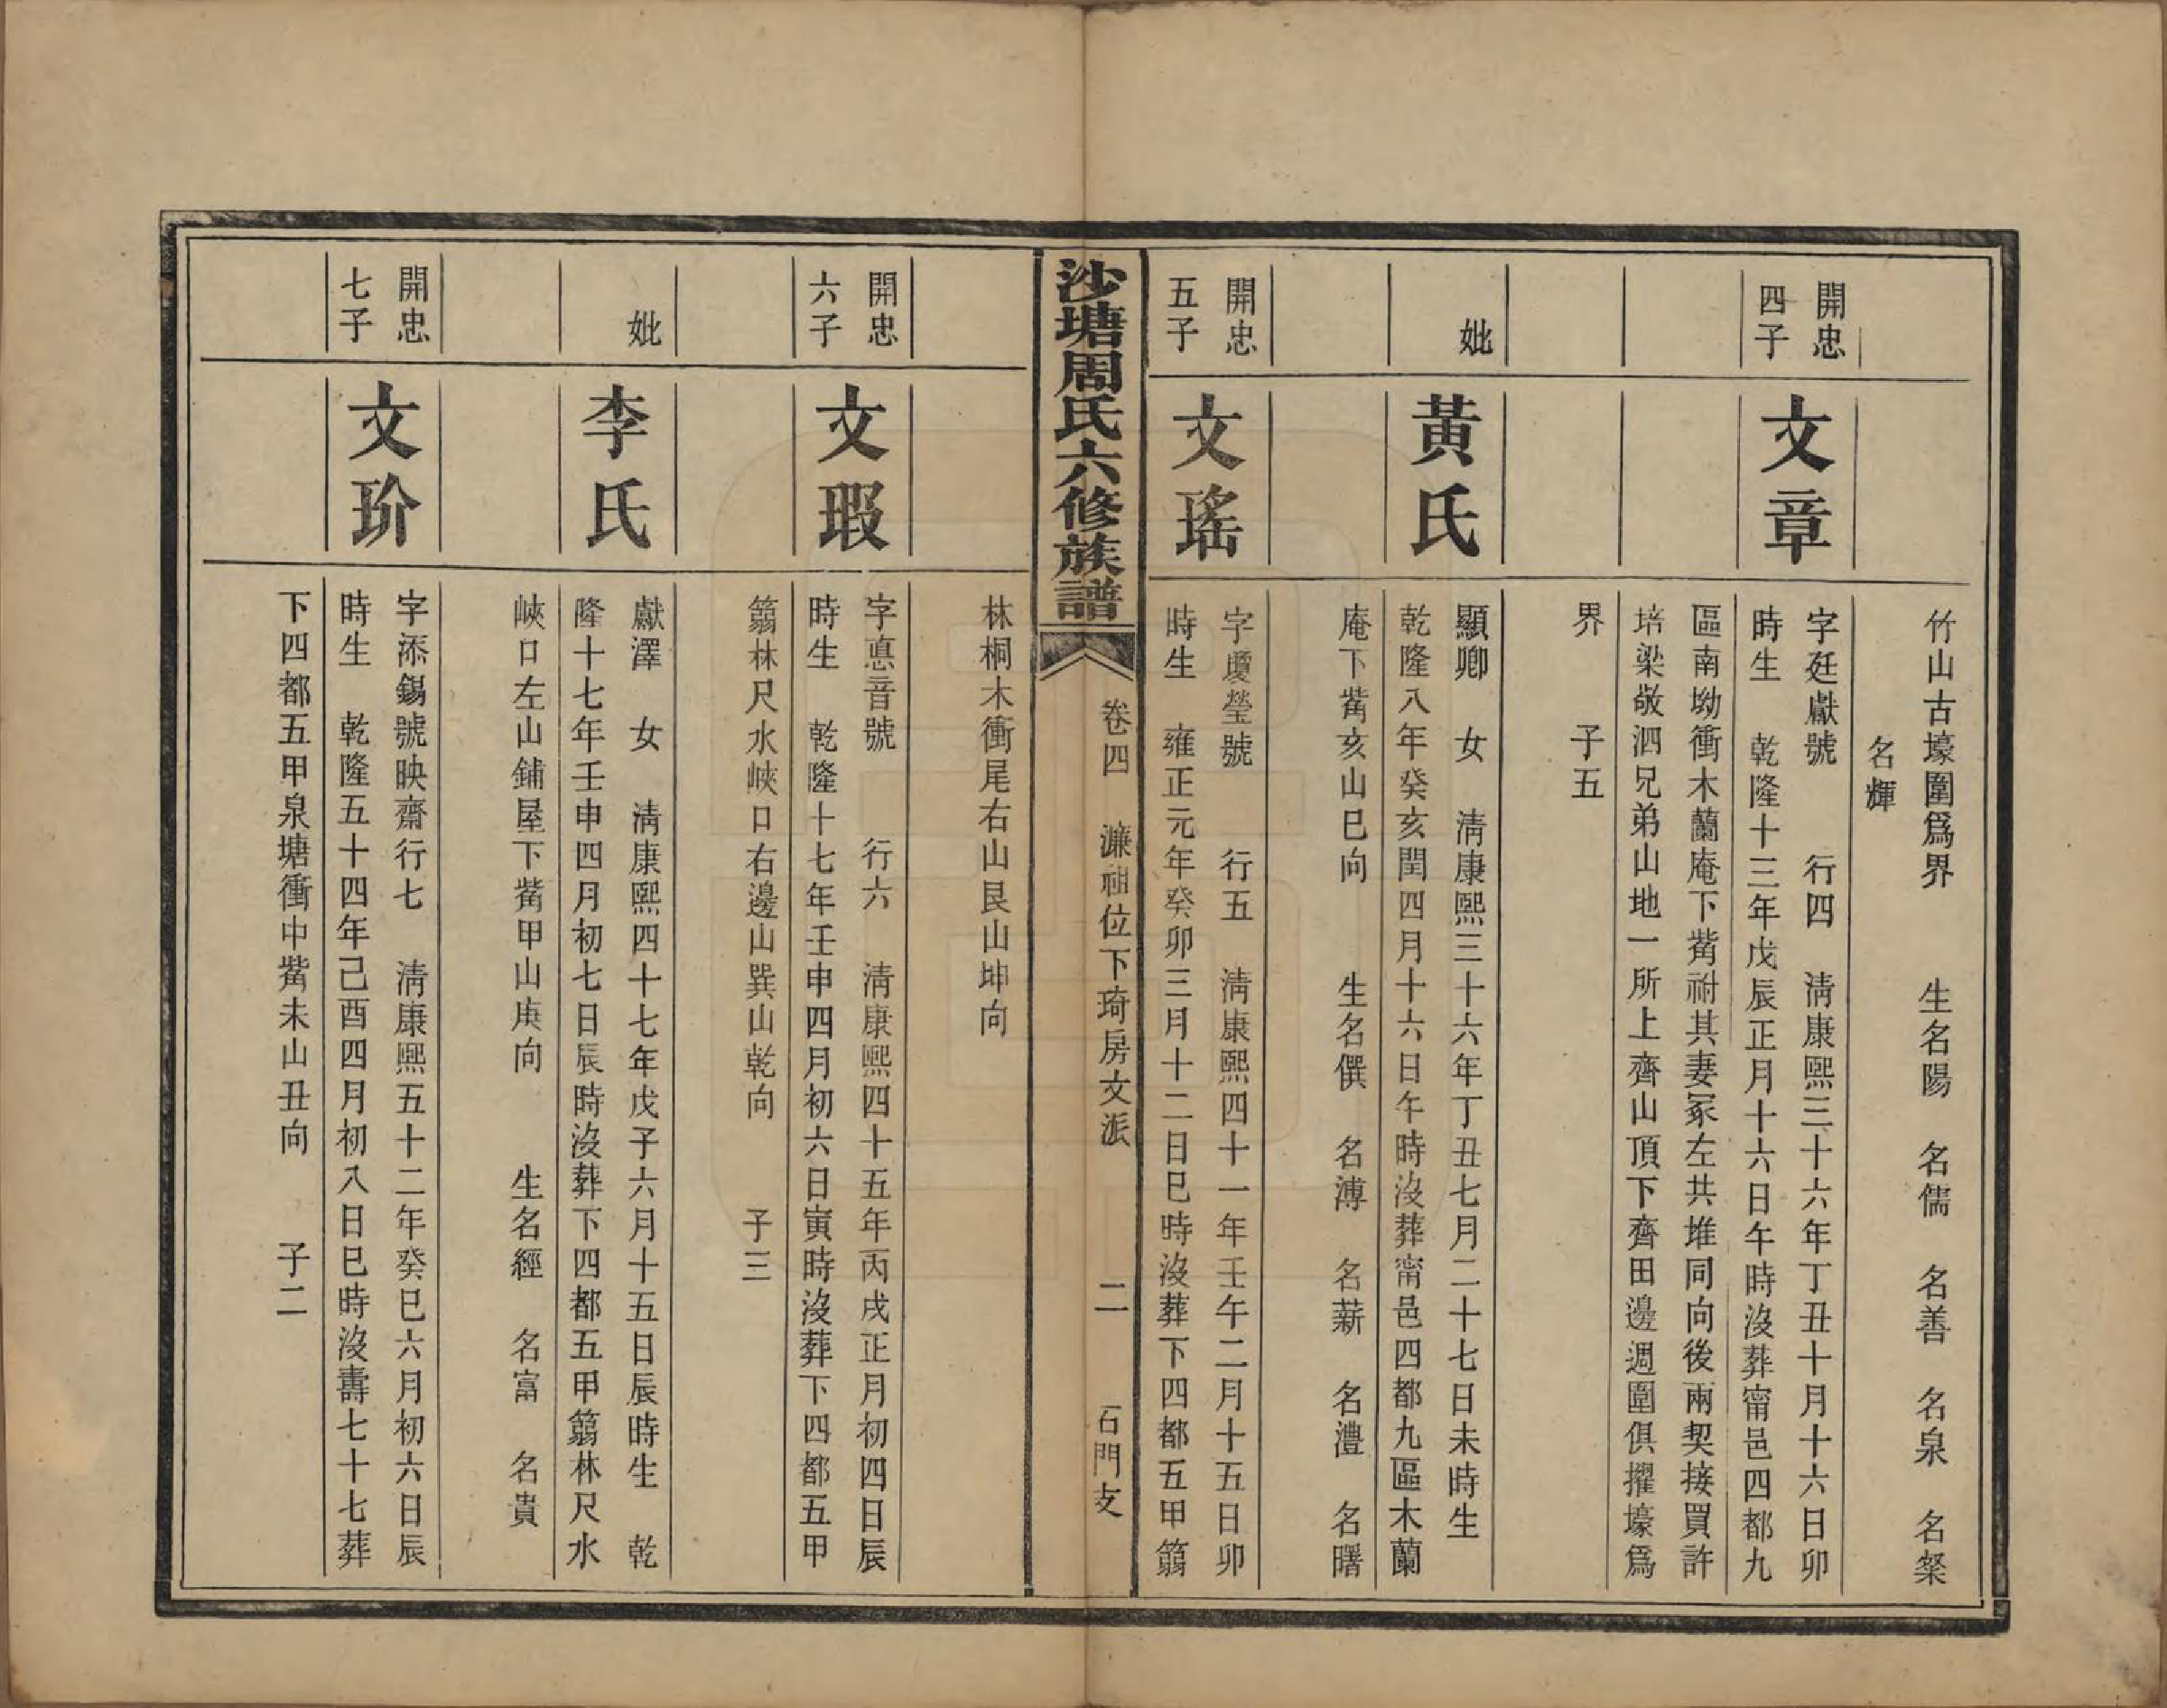 竹山古壕圍爲界　生名陽　名儒　名善　名泉　名粲
名輝
開忠
四子
文章
字廷獻號　行四　清康熙三十六年丁丑十月十六日卯
時生　乾隆十三年戊辰正月十六日午時沒葬甯邑四都九
區南坳衝木蘭庵下觜祔其妻冢左共堆同向後兩契接買許
培梁敬泗兄弟山地一所上齊山頂下齊田邊週圍俱擢壕爲
界　子五
妣
黃氏
顯卿　女　清康熙三十六年丁丑七月二十七日未時生
乾隆八年癸亥閏四月十六日午時沒葬甯邑四都九區木蘭
庵下觜亥山巳向　生名僎　名溥　名薪　名澧　名曙
開忠
五子
文瑤
字瓊瑩號　行五　清康熙四十一年壬午二月十五日卯
時生　雍正元年癸卯三月十二日巳時沒葬下四都五甲篛
沙塘周氏六修族譜
卷四　濂祖位下琦房文派　二　石門支
林桐木衝尾右山艮山坤向
開忠
六子
文瑕
字悳音號　行六　清康熙四十五年丙戌正月初四日辰
時生　乾隆十七年壬申四月初六日寅時沒葬下四都五甲
篛林尺水峽口右邊山巽山乾向　子三
妣
李氏
獻澤　女　清康熙四十七年戊子六月十五日辰時生　乾
隆十七年壬申四月初七日辰時沒葬下四都五甲篛林尺水
峽口左山鋪屋下觜甲山庚向　生名經　名富　名貴
開忠
七子
文玠
字添錫號映齋行七　清康熙五十二年癸巳六月初六日辰
時生　乾隆五十四年己酉四月初八日巳時沒壽七十七葬
下四都五甲泉塘衝中觜未山丑向　子二